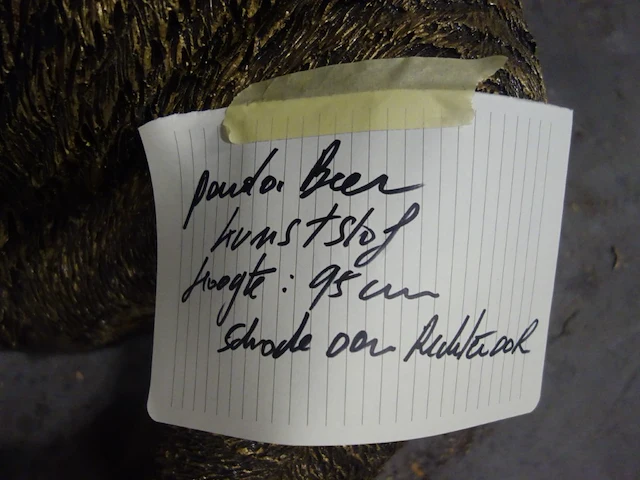 panda Beer
kunststof
Hoogte: 95 cm
schade aan Rechteroor